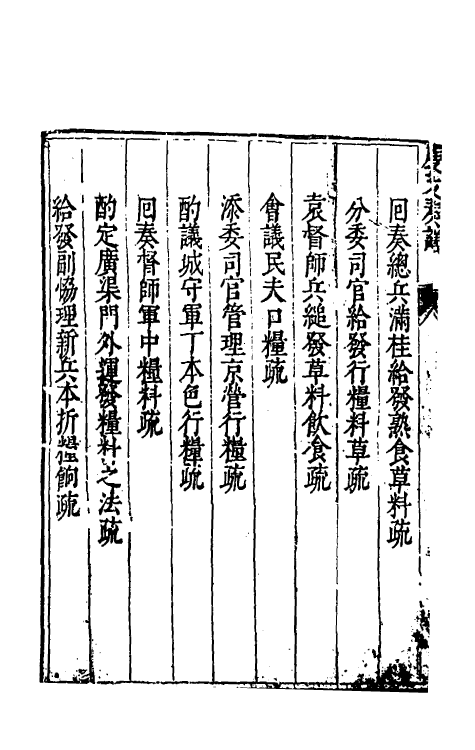 回奏總兵滿桂給發熟食草料疏
分委司官給發行糧料草疏
袁督師兵縋發草料飲食疏
會議民夫口糧疏
添委司官管理京營行糧疏
酌議城守軍丁本色行糧疏
回奏督師軍中糧料疏
酌定廣渠門外運發糧料之法疏
給發副協理新兵本折糧餉疏